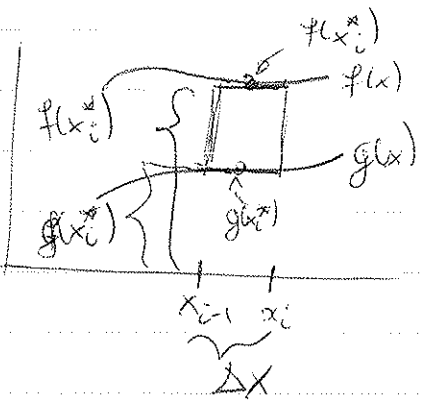 f(x_i^*)
f(x)
f(x_i^*)
g(x)
g(x_i^*)
g(x_i^*)
x_{i-1} x_i
Δx